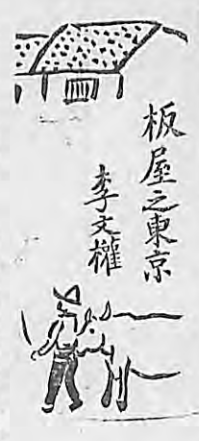 板屋之東京
李文權